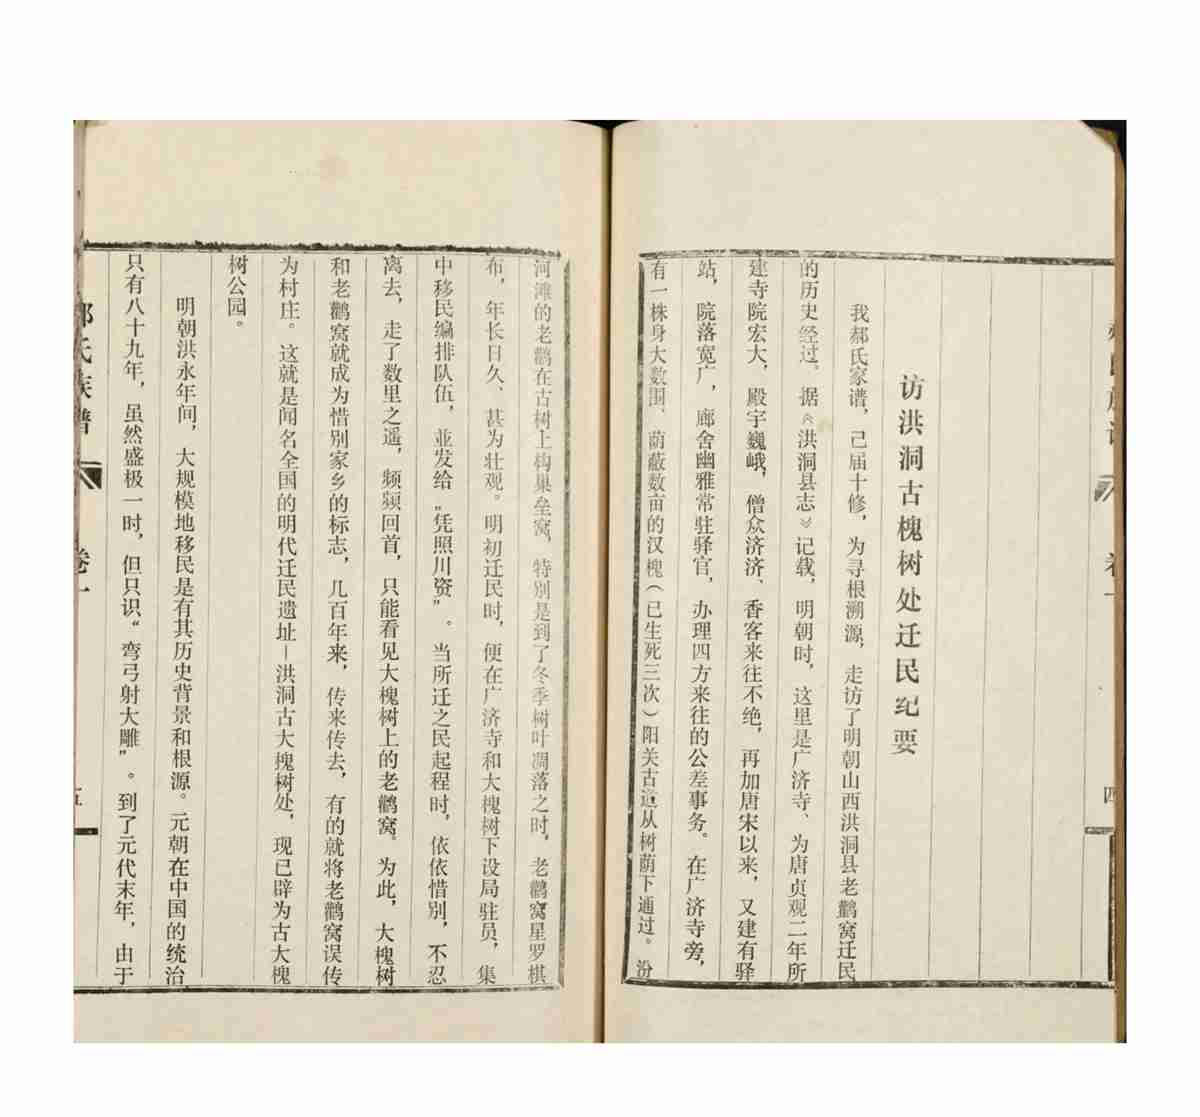 氏族谱
卷一
四
访洪洞古槐树处迁民纪要
我郝氏家谱，己届十修，为寻根溯源，走访了明朝山西洪洞县老鹳窝迁民
的历史经过。据《洪洞县志》记载，明朝时，这里是广济寺、为唐贞观二年所
建寺院宏大，殿宇巍峨，僧众济济、香客来往不绝，再加唐宋以来，又建有驿
站，院落宽广，廊舍幽雅常驻驿官，办理四方来往的公差事务。在广济寺旁，
有一株身大数围、荫蔽数亩的汉槐（已生死三次）阳关古道从树荫下通过。汾
河滩的老鹳在古树上构巢垒窝，特别是到了冬季树叶凋落之时，老鹳窝星罗棋
布，年长日久、甚为壮观。明初迁民时，便在广济寺和大槐树下设局驻员，集
中移民编排队伍，並发给„凭照川资”。当所迁之民起程时，依依惜别，不忍
离去，走了数里之遥，频频回首，只能看见大槐树上的老鹳窝，为此，大槐树
和老鹳窝就成为惜别家乡的标志，几百年来，传来传去，有的就将老鹳窝误传
为村庄。这就是闻名全国的明代迁民遗址—洪洞古大槐树处，现已辟为古大槐
树公园。
明朝洪永年间，大规模地移民是有其历史背景和根源。元朝在中国的统治
只有八十九年，虽然盛极一时，但只识“弯弓射大雕”。到了元代末年，由于
郝氏族谱
卷一
五